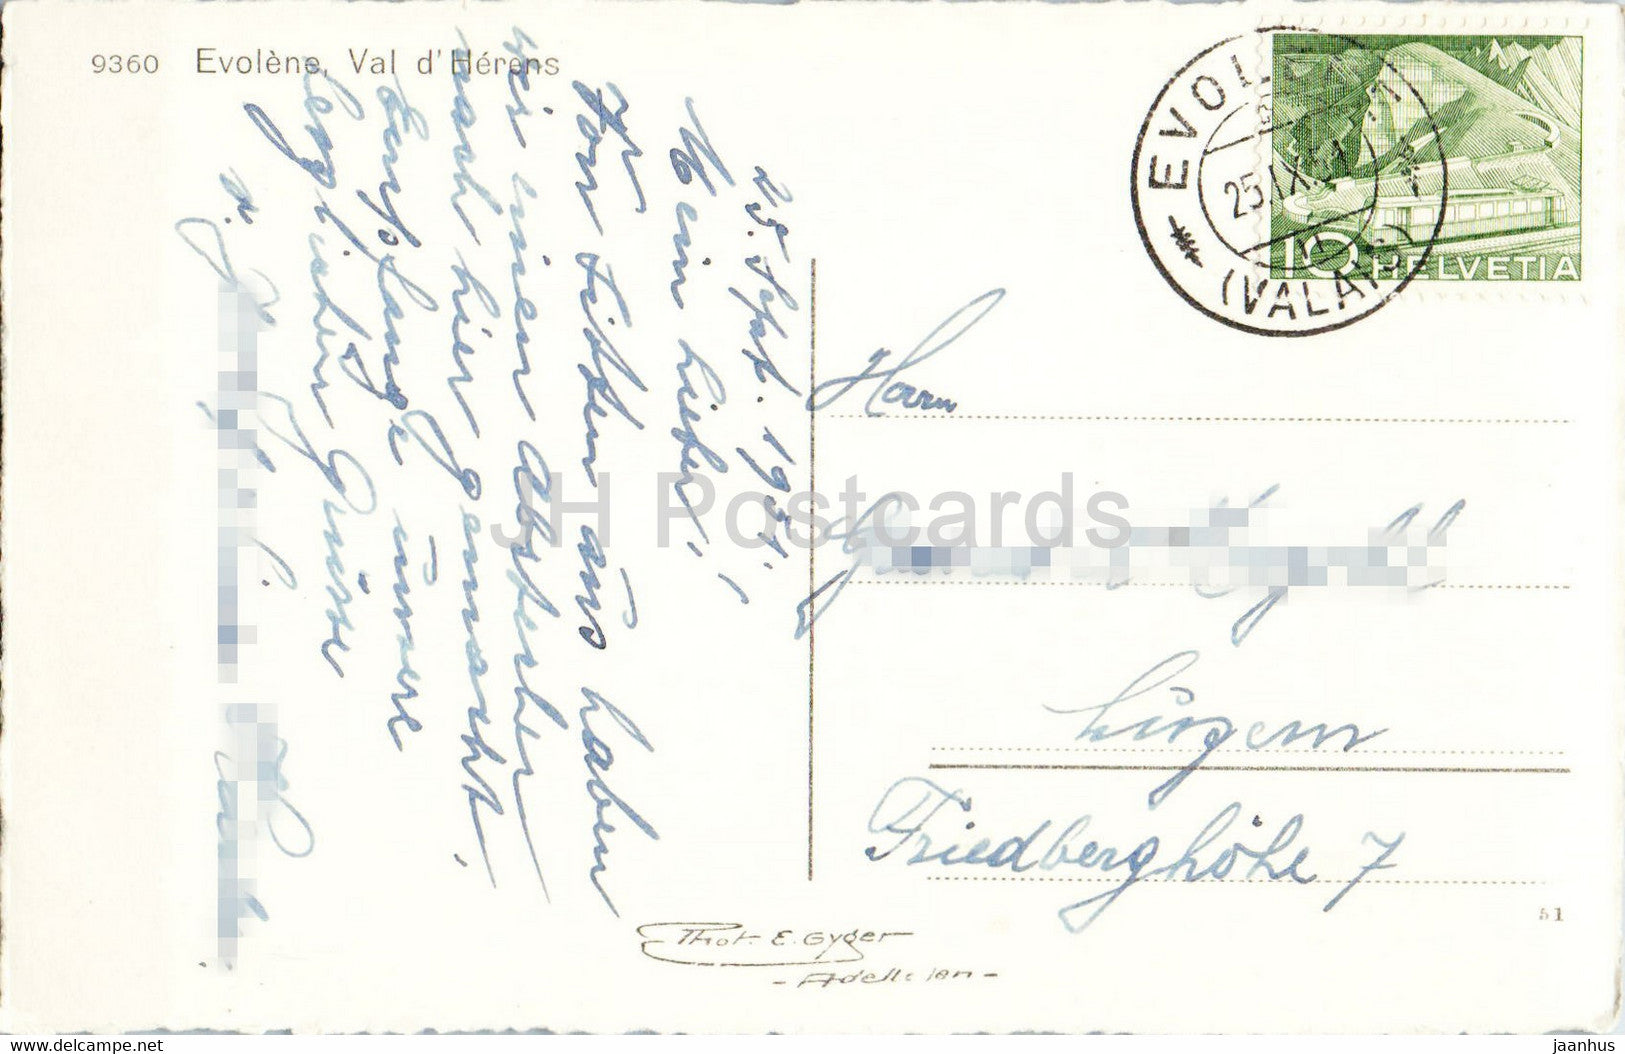 9360 Evolène, Val d'Hérens
25. Sept. 1951,
Mein lieber!
Von Sitten aus haben
wir einen Abstecher
nach hier gemacht.
Empfange unsere
herzlichen Grüsse
EVOLÈNE
25.IX.51
(VALAIS)
10 HELVETIA
Herrn
Luzern
Friedberghöhe 7
51
Phot. E. Gyger
- Adelboden -
JH Postcards
delcampe.net
jaanhus